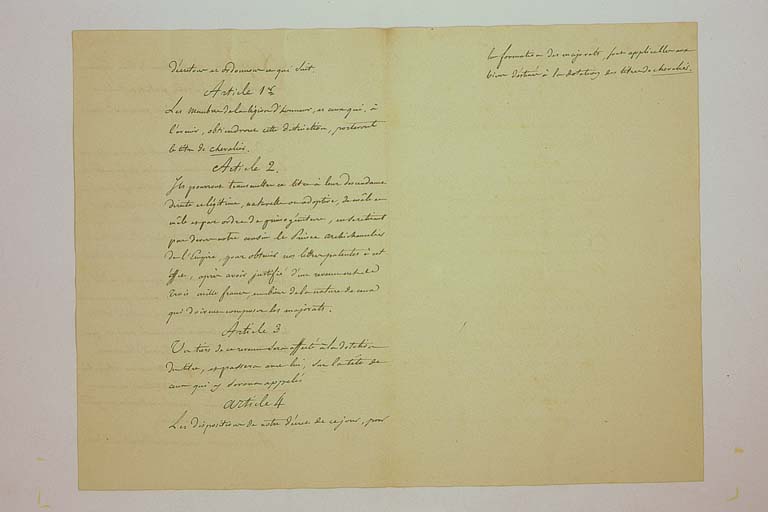 décrétons et ordonnons ce qui suit.
Article 1er
Les Membres de la légion d'honneur, et ceux qui, à
l'avenir, obtiendront cette distinction, porteront
le titre de chevalier.
Article 2.
Ils pourront transmettre ce titre à leur descendance
directe et légitime, naturelle ou adoptive, de mâle en
mâle et par ordre de primogéniture, en se retirant
par devant notre cousin le Prince archichancelier
de l'Empire, pour obtenir nos lettres patentes à cet
effet, après avoir justifié d'un revenu net de
trois mille francs, en biens de la nature de ceux
qui doivent composer les majorats.
Article 3
Un tiers de ce revenu sera affecté à la dotation
du titre, et passera avec lui, sur la tête de
ceux qui y seront appelés
article 4
Les dispositions de notre décret de ce jour, pour
la formation des majorats, sont applicables aux
biens destinés à la dotation des titres de chevalier.